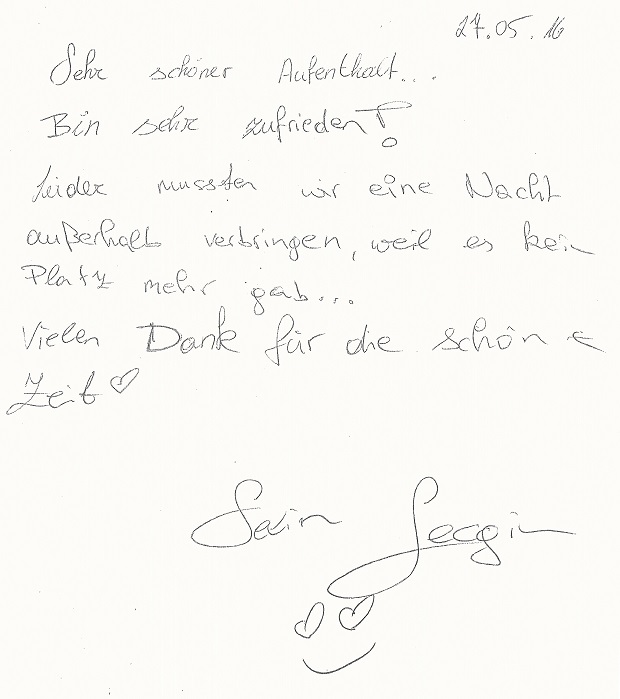 27.05.16
Sehr schöner Aufenthalt...
Bin sehr zufrieden!
Leider mussten wir eine Nacht
außerhalb verbringen, weil es kein
Platz mehr gab...
Vielen Dank für die schöne
Zeit ♡